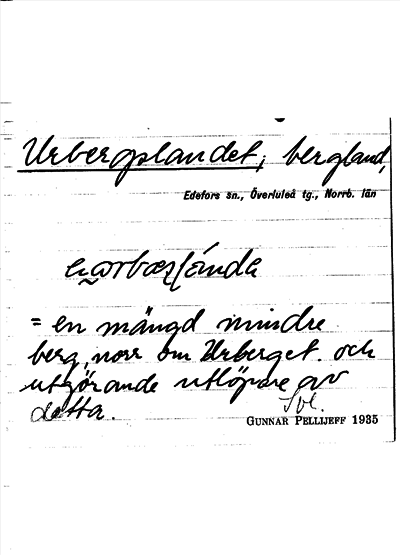 Urbergslandet, bergland,
Edefors sn., Överluleå tg., Norrb. län
= en mängd mindre
berg, norr om Urberget och
utgörande utlöpare av
detta.
GUNNAR PELLIJEFF 1935